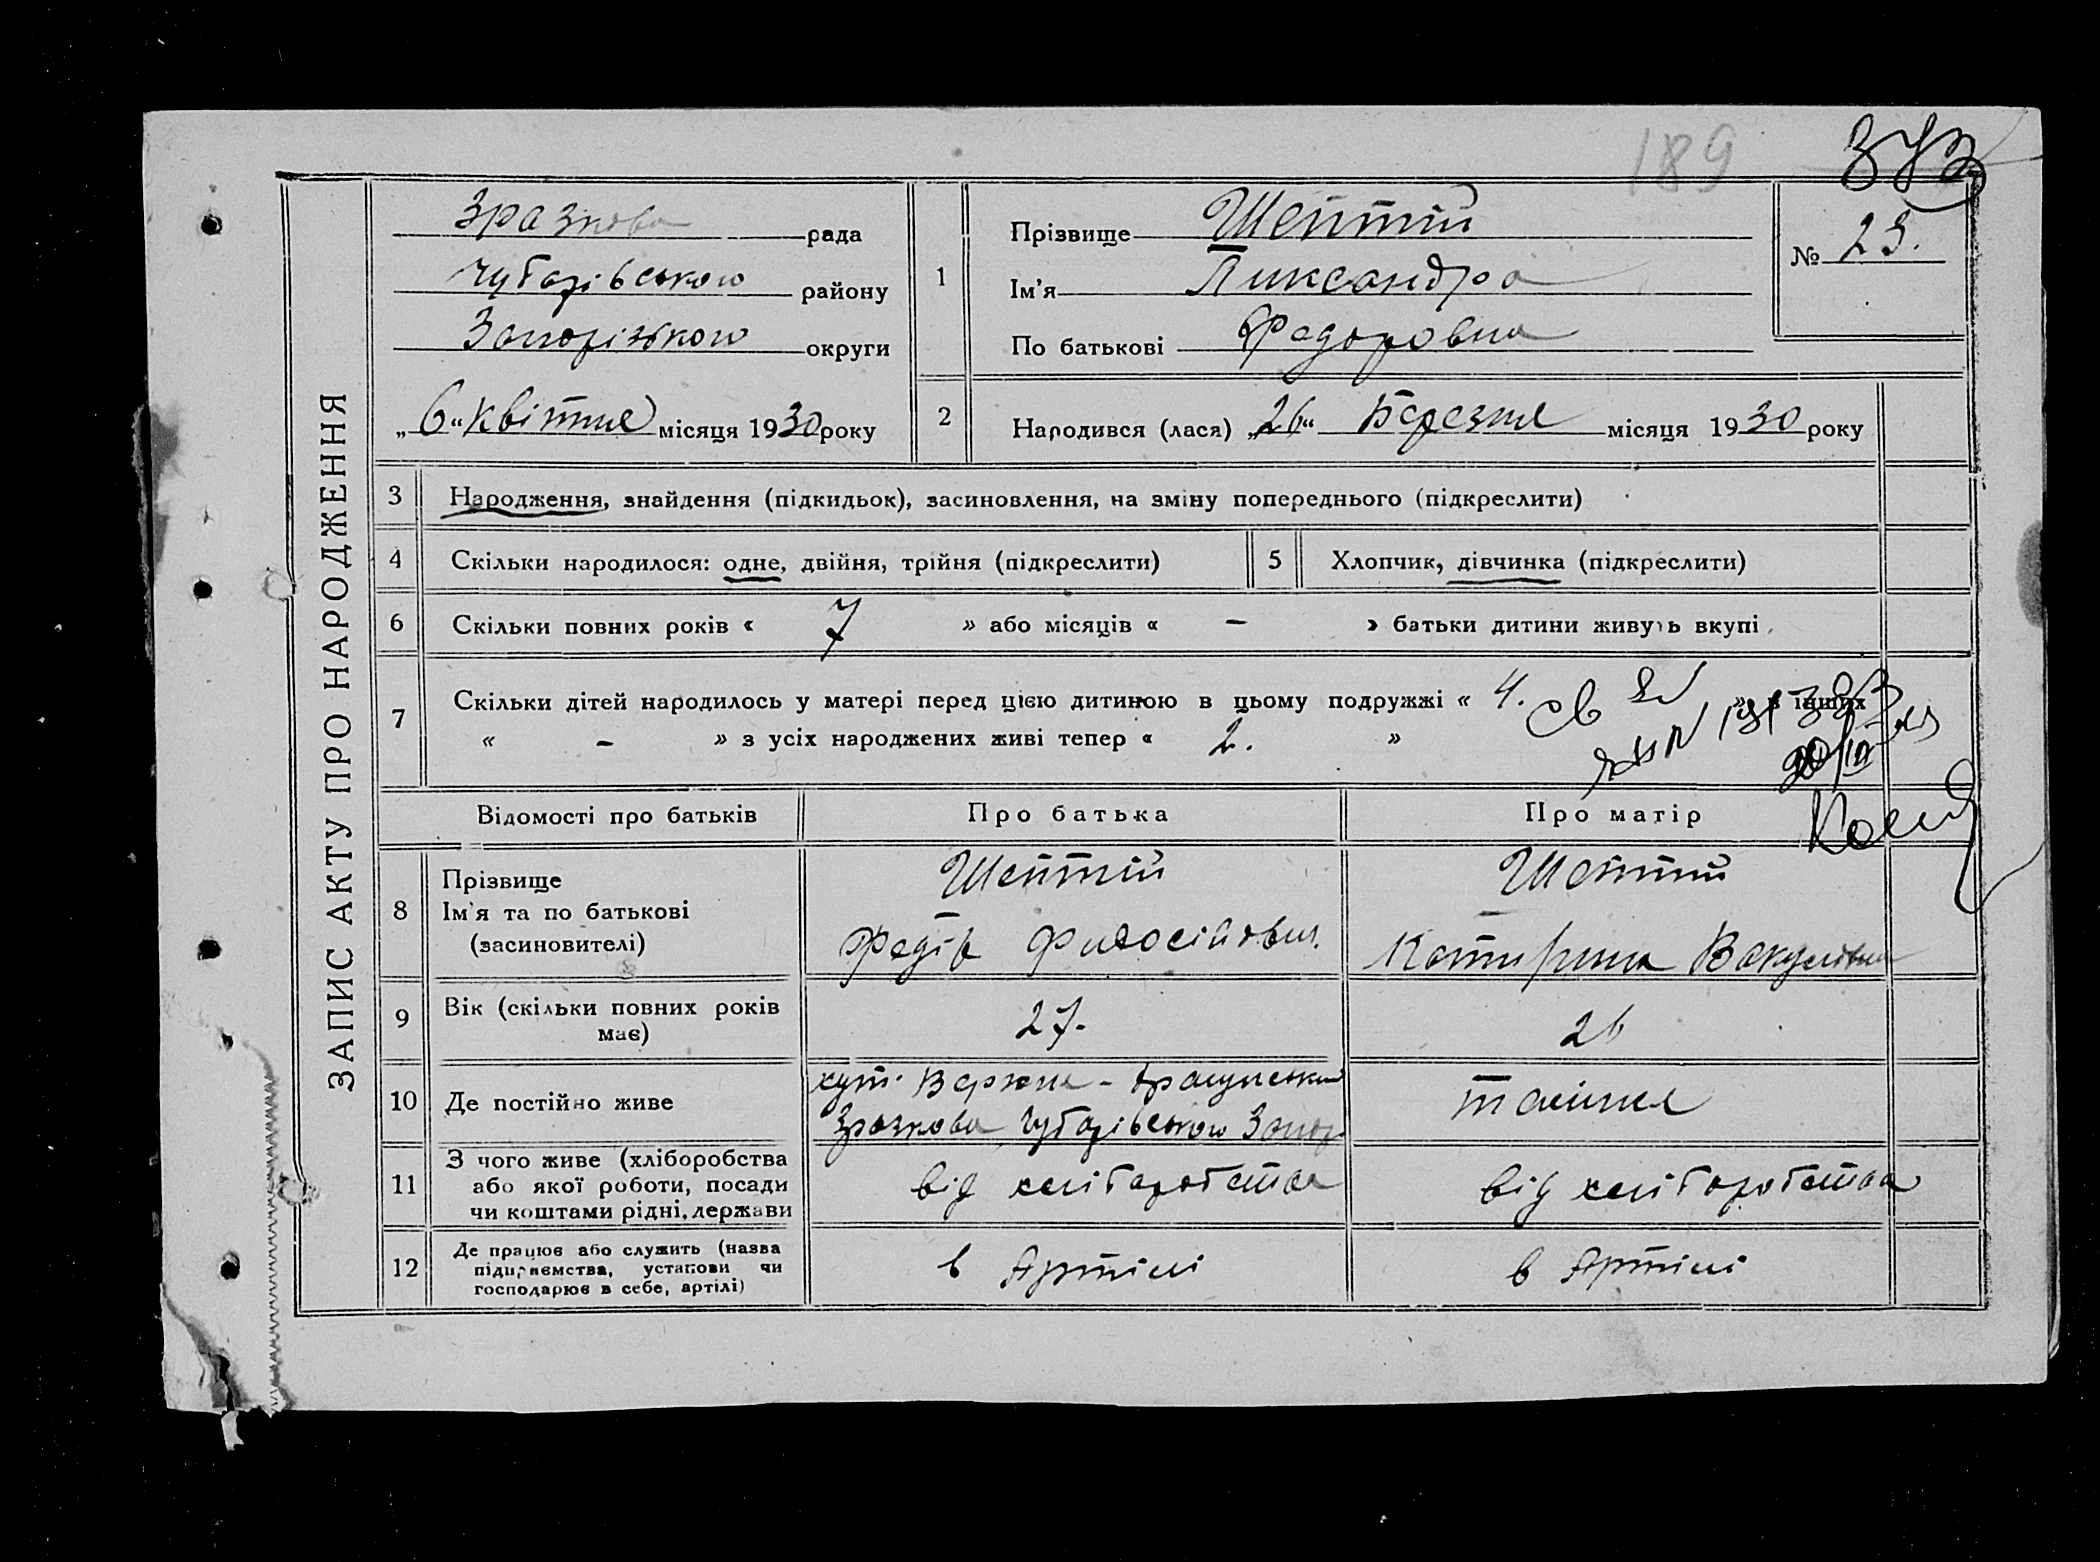 189
373
ЗАПИС АКТУ ПРО НАРОДЖЕННЯ
Зразкова рада
Чубарівського району
Запорізького округи
„6“ Квітня місяця 1930 року
1
Прізвище Шептій
Ім'я Ликсандра
По батькові Федоровна
№ 23.
2
Народився (лася) „26“ Березня місяця 1930 року
3 Народження, знайдення (підкидьок), засиновлення, на зміну попереднього (підкреслити)
4 Скільки народилося: одне, двійня, трійня (підкреслити) 5 Хлопчик, дівчинка (підкреслити)
6 Скільки повних років « 7 » або місяців « – » батьки дитини живуть вкупі
7 Скільки дітей народилось у матері перед цією дитиною в цьому подружжі « 4. » з інших
« – » з усіх народжених живі тепер « 2. »
Відомості про батьків Про батька Про матір
8 Прізвище
Ім'я та по батькові
(засиновителі)
Шептій
Федір
Шептій
Катирина Вакулівна
9 Вік (скільки повних років
має)
27. 26
10 Де постійно живе
хут. Верхне-
Зразкова Чубарівського Запор.
также
11 З чого живе (хліборобства
або якої роботи, посади
чи коштами рідні, держави
від хліборобства від хліборобства
12 Де працює або служить (назва
підприємства, установи чи
господарює в себе, артілі)
в Артілі в Артілі